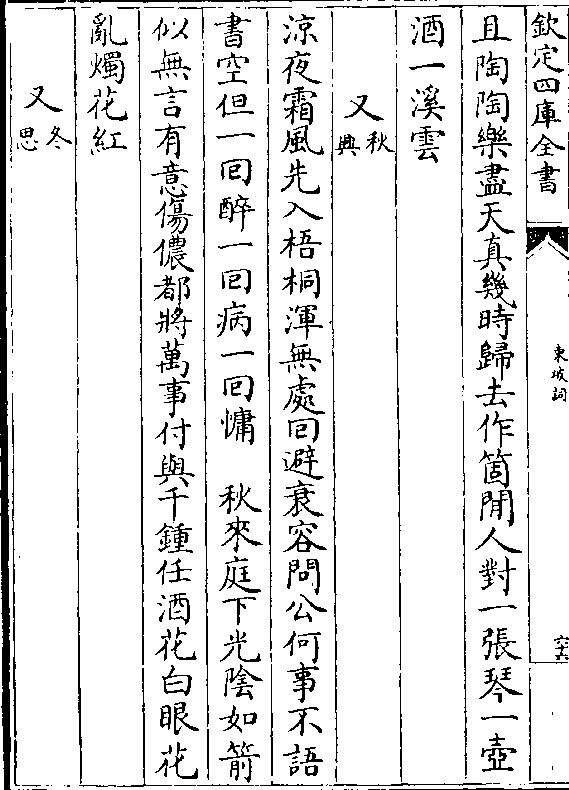 欽定四庫全書
東坡詞
六十六
且陶陶樂盡天真幾時歸去作箇閒人對一張琴一壺
酒一溪雲
又 秋興
涼夜霜風先入梧桐渾無處回避衰容問公何事不語
書空但一回醉一回病一回慵　秋來庭下光陰如箭
似無言有意傷儂都將萬事付與千鍾任酒花白眼花
亂燭花紅
又 冬思